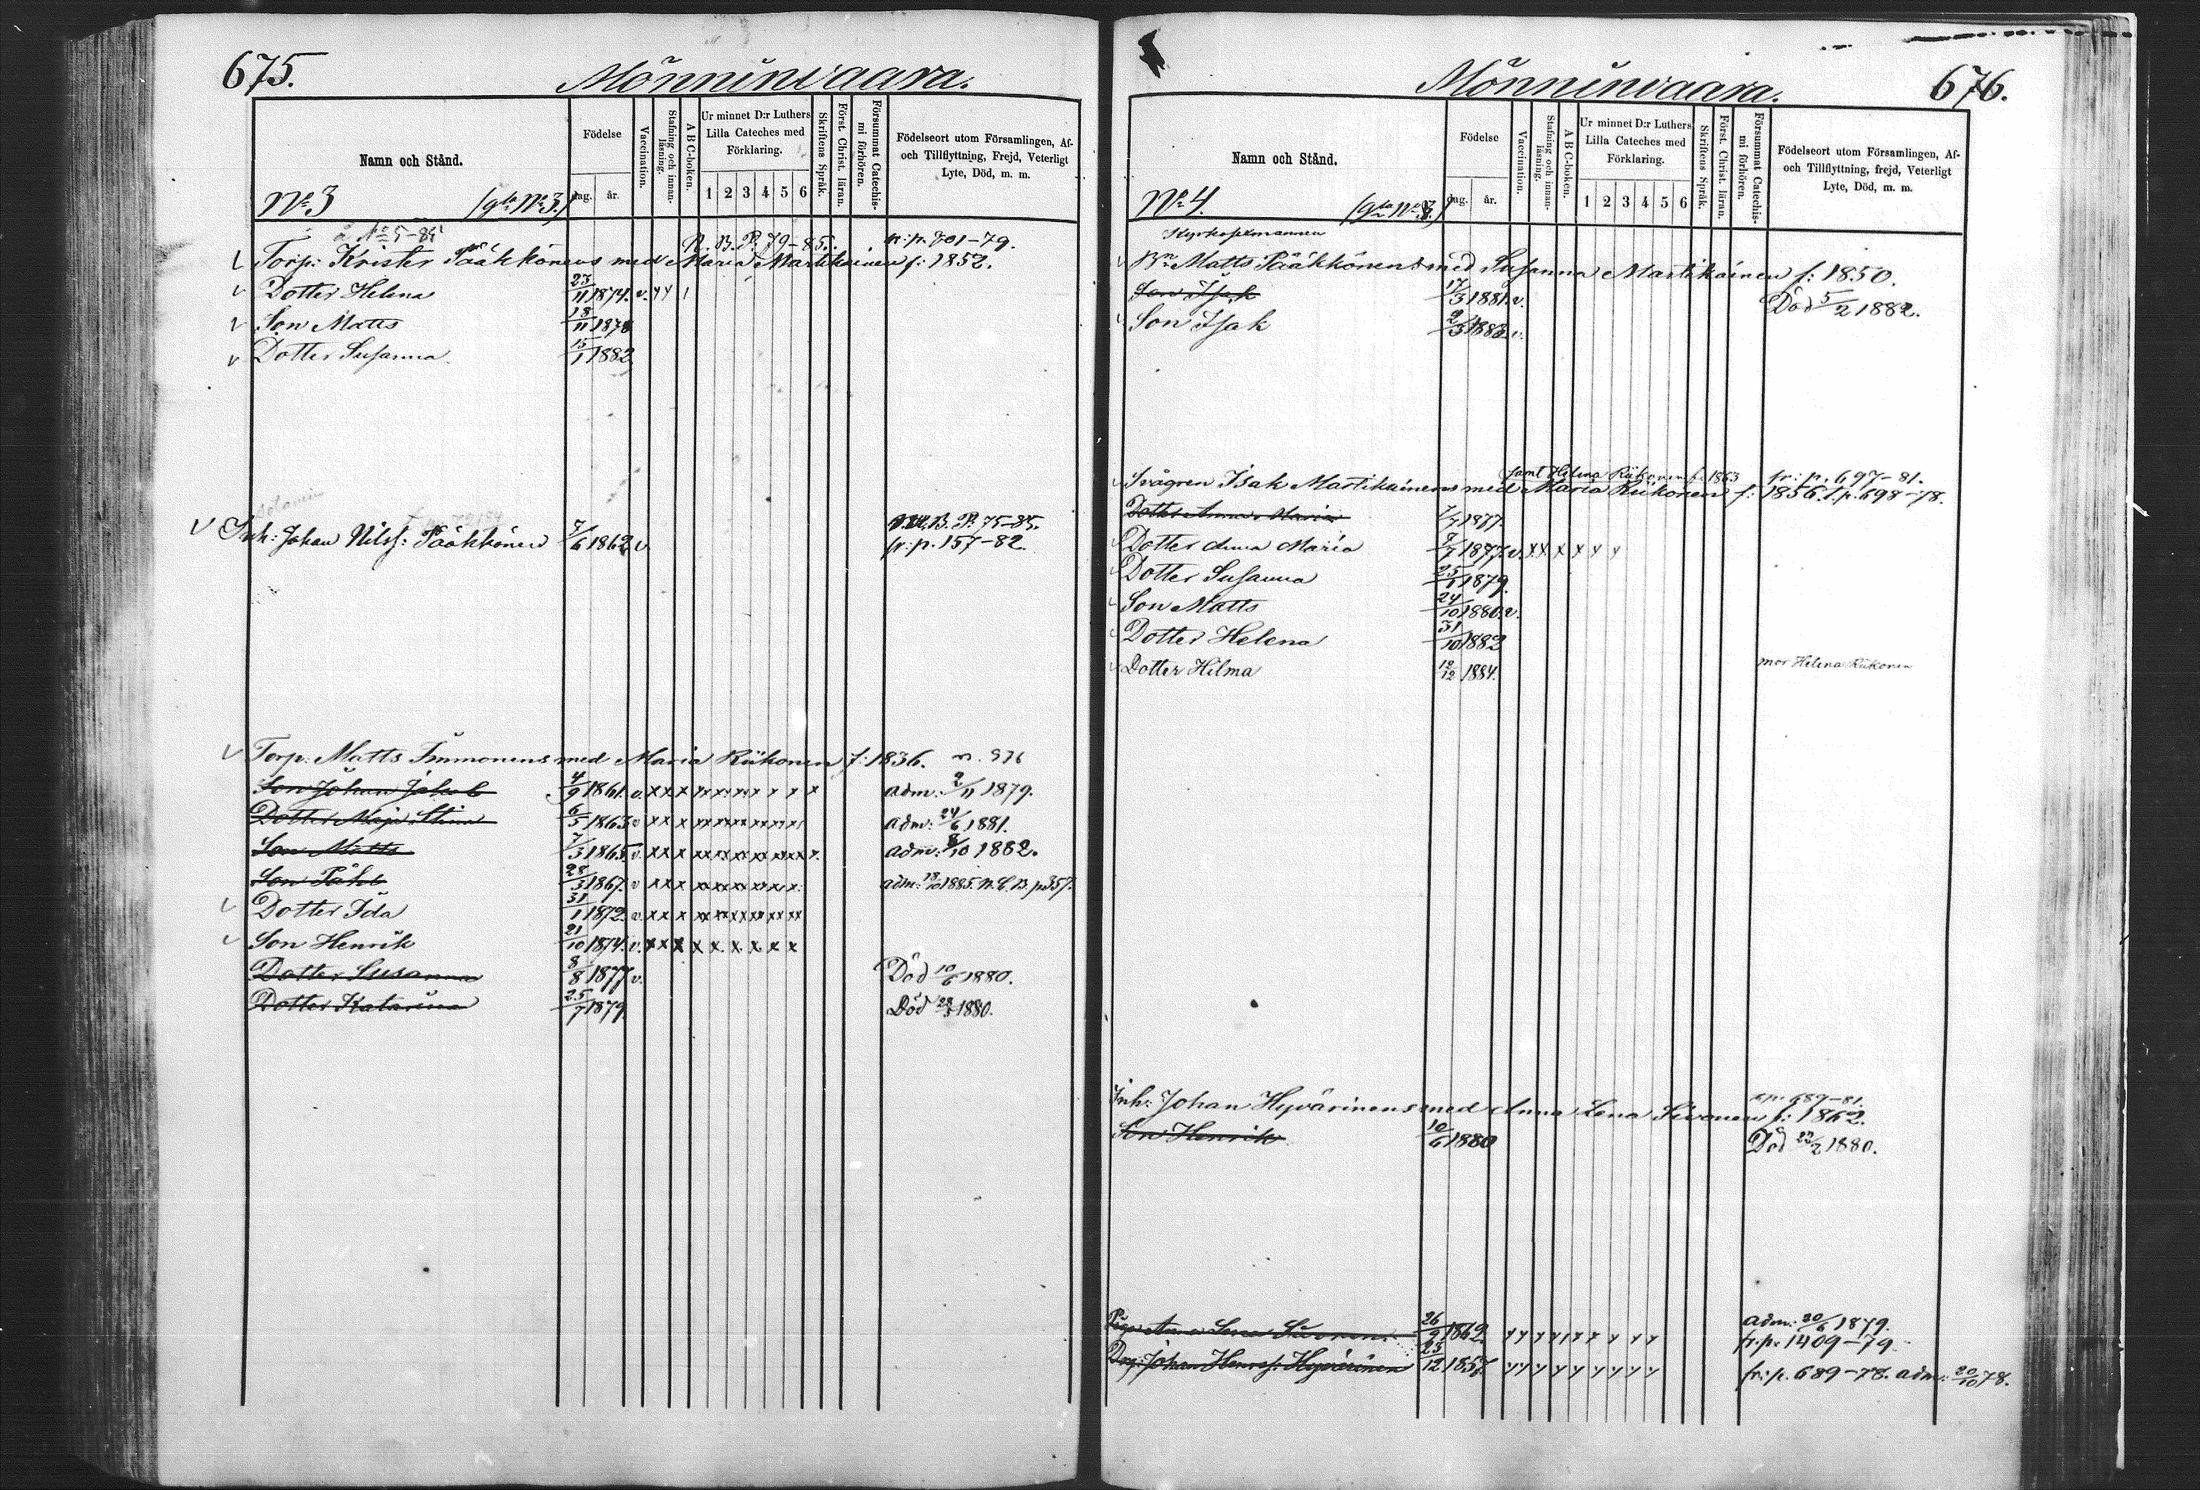 675.
Mönninvaara.
Namn och Stånd.
Födelse
dag. år.
Vaccination.
Stafning och innanläsning.
A B C-boken.
Ur minnet D:r Luthers Lilla Cateches med Förklaring.
1 2 3 4 5 6
Skriftens Språk.
Först. Christ. läran.
Försummat Catechismi förhören.
Födelseort utom Församlingen, Af- och Tillflyttning, Frejd, Veterligt Lyte, Död, m. m.
No 3 (gla No 3.)
å No 5-85
R. B. P. 79-85. fr: p. 701-79.
Torp: Krister Pääkkönens med Maria Martikainen f: 1852.
Dotter Helena 23/11 1874. v. y y 1
Son Matts 18/11 1878
Dotter Susanna 15/1 1882
B. P. 75-85.
Inh: Johan Nilsf: Pääkkönen 7/6 1862 v. fr: p. 157-82.
Torp: Matts Immonens med Maria Riikonen f: 1836. n. 976
Son Johan Jakob 4/9 1861. v. x x x x x x x x x x adm: 2/11 1879.
Dotter Maja Stina 6/5 1863 v x x x xx xx xx xx xx adm: 24/6 1881.
Son Matts 7/3 1865. v. x x x xx xx xx xx xx x. adm: 8/10 1882.
Son Påhl 28/3 1867. v x x x xx xx xx xx x. adm: 18/10 1885. N. C. B. p 357.
Dotter Ida 31/1 1872. v. x x x xx xx xx xx xx xx
Son Henrik 21/10 1874. v. x x x x x x x x x
Dotter Susanna 8/8 1877 v. Död 10/6 1880.
Dotter Katarina 25/7 1879. Död 28/3 1880.
676.
Mönninvaara.
Namn och Stånd.
Födelse
dag. år.
Vaccination.
Stafning och innanläsning.
A B C-boken.
Ur minnet D:r Luthers Lilla Cateches med Förklaring.
1 2 3 4 5 6
Skriftens Språk.
Först. Christ. läran.
Försummat Catechismi förhören.
Födelseort utom Församlingen, Af- och Tillflyttning, frejd, Veterligt Lyte, Död, m. m.
No 4. (gla No 3.)
Bn Matts Pääkkönens med Susanna Martikainen f: 1850.
Son Isak 17/3 1881. v. Död 5/2 1882.
Son Isak 2/3 1883. v.
samt Helena Riikonen f. 1863 fr: p. 697-81.
Svågren Isak Martikainens med Maria Riikonen f: 1856. f. p. 698-78.
Dotter Anna Maria 7/7 1877.
Dotter Anna Maria 7/7 1877. v. x x x x y y
Dotter Susanna 25/1 1879.
Son Matts 24/10 1880. v.
Dotter Helena 31/10 1882
Dotter Hilma 12/12 1884. mor Helena Riikonen
fr: p. 689-81.
Inh: Johan Hyvärinens med Anna Lena Sivonen f: 1862.
Son Henrik 10/6 1880 Död 22/2 1880.
Pig: Anna Lena Sivonen 26/9 1862. y y y y x x y y y adm: 20/6 1879.
fr: p. 1409-79.
Drg: Johan Henrsf: Hyvärinen 23/12 1857. y y y y y y y y y fr: p. 689-78. adm: 20/10 78.